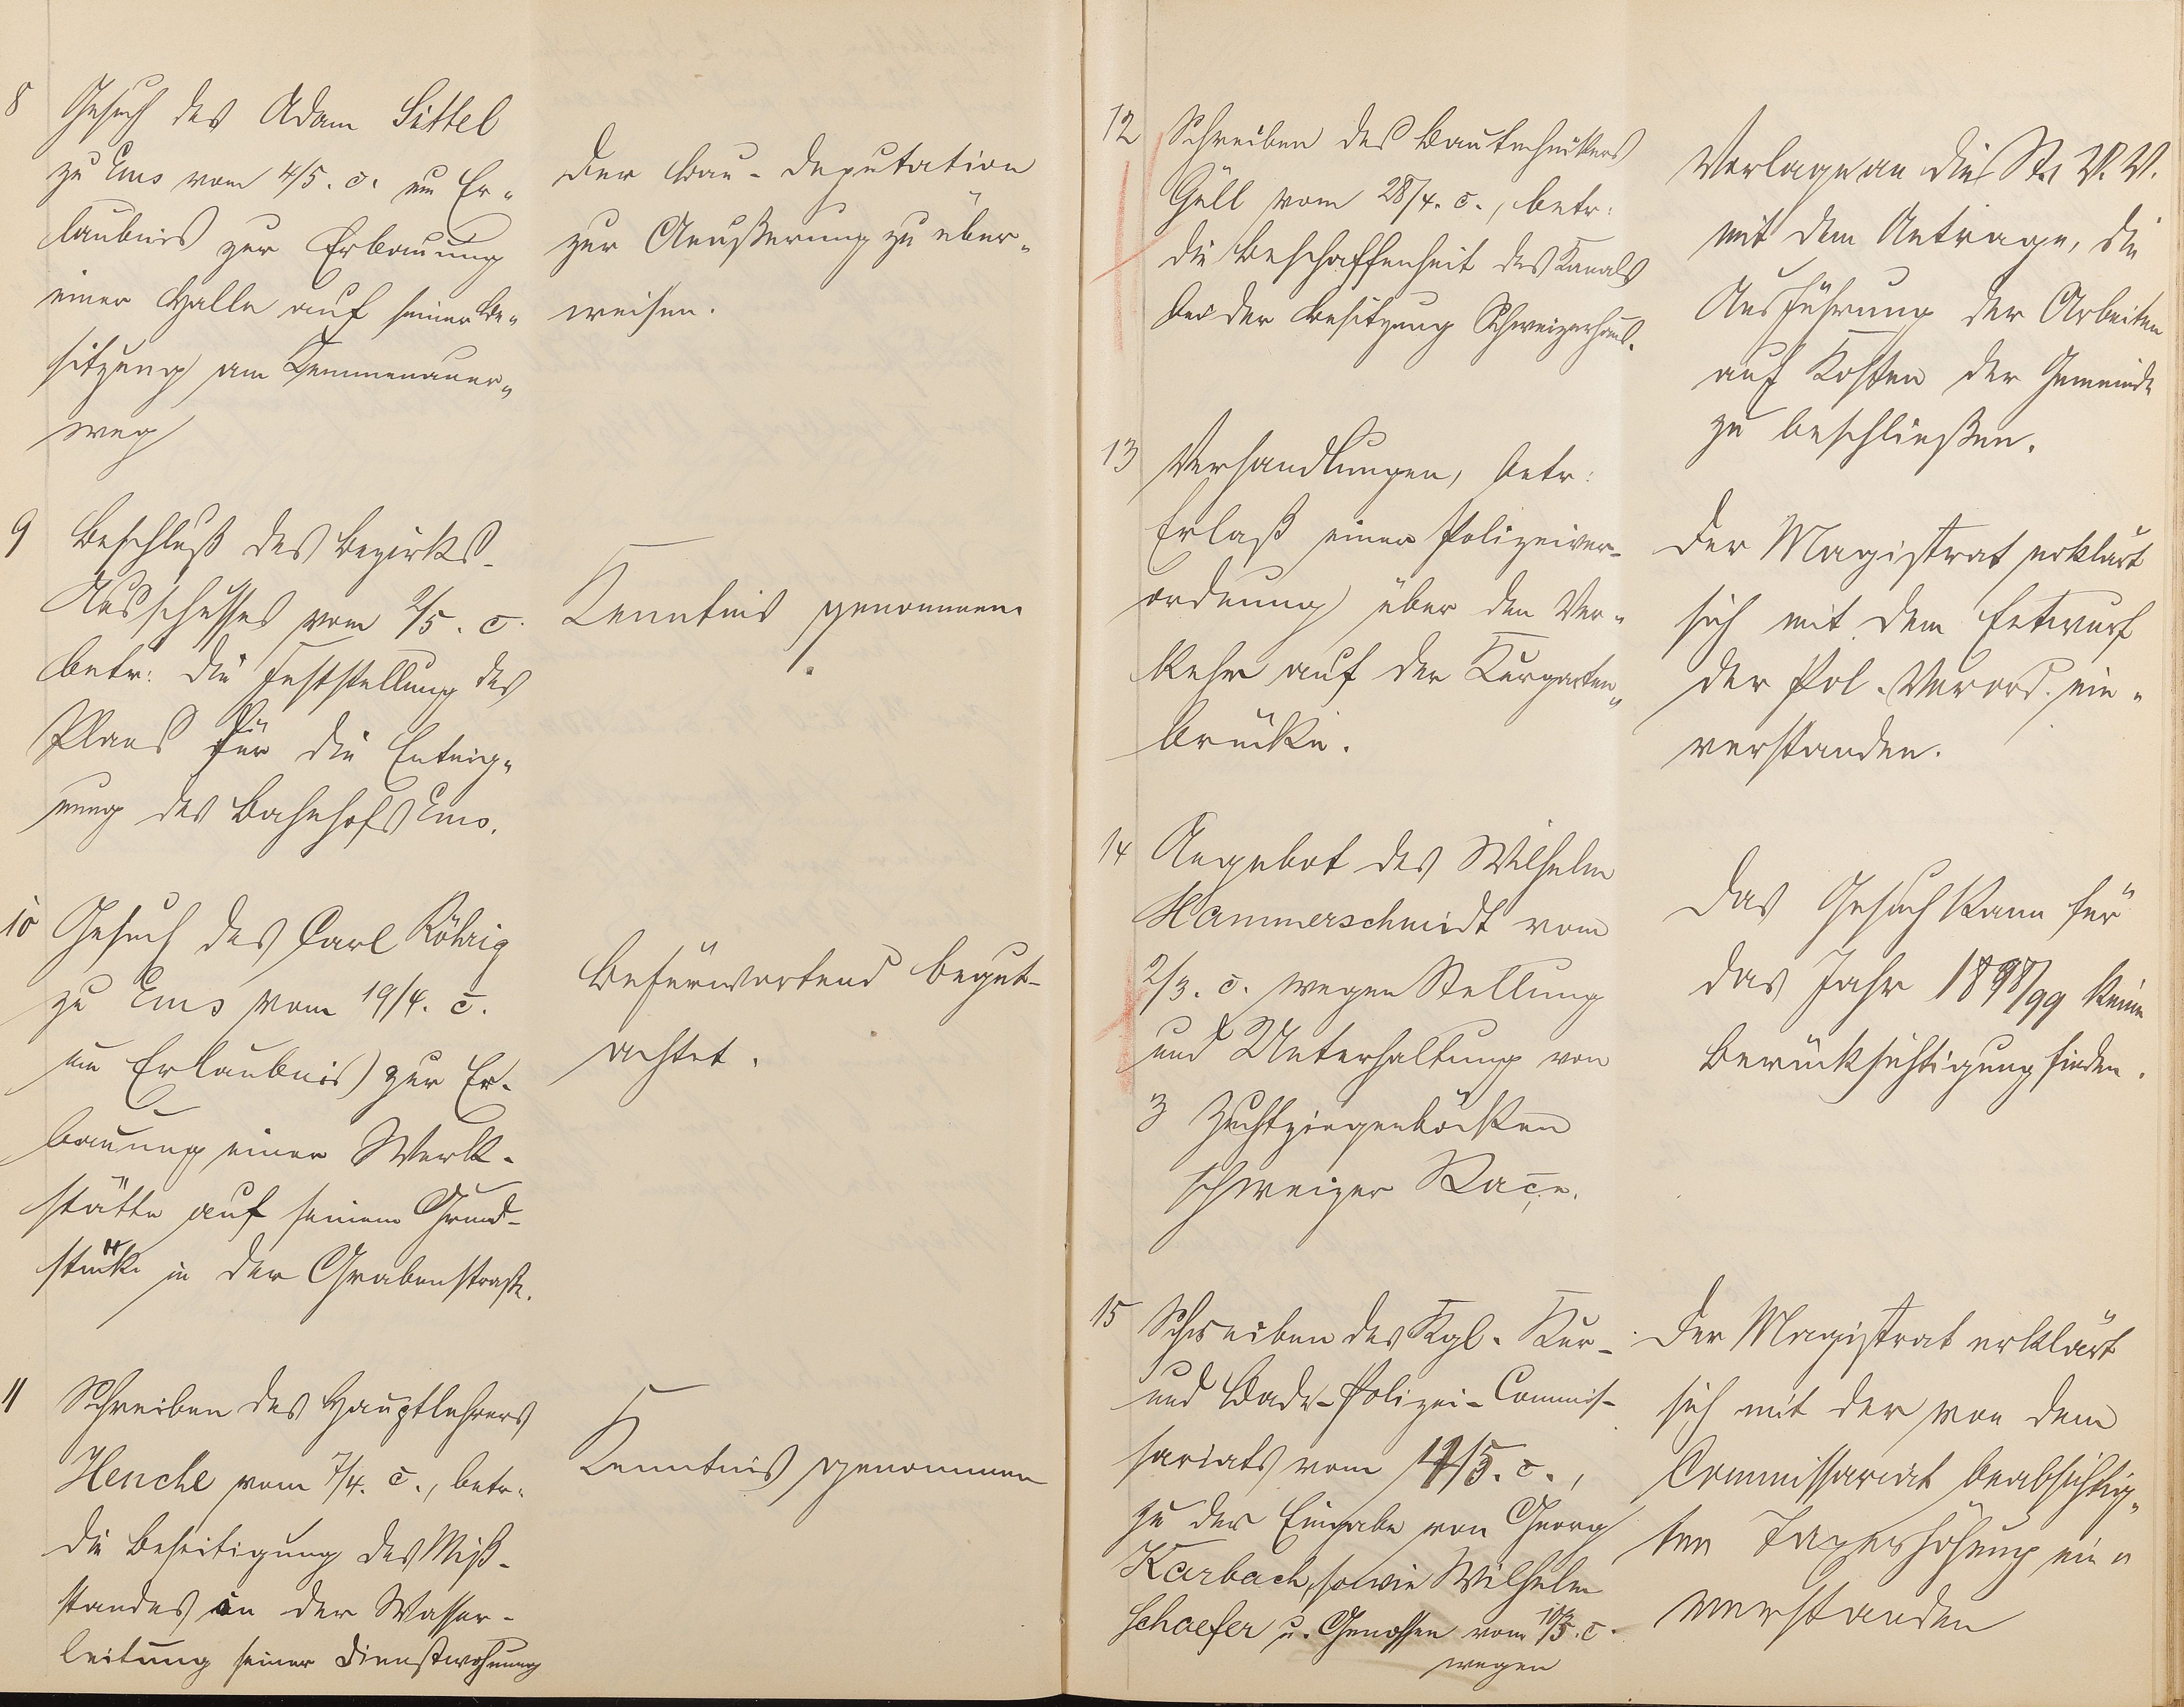 8 Gesuch des Adam Sittel
zu Ems vom 4/5. c. um Er-
laubnis zur Erbauung
einer Halle auf seiner Be-
sitzung am Kemmenauer-
weg
Der Bau-Deputation
zur Aeußerung zu über-
weisen.
9 Beschluß des Bezirks-
Ausschusses vom 2/5. c.
betr: die Feststellung des
Plans für die Enteig-
nung des Bahnhofs Ems.
Kenntnis genommen.
10 Gesuch des Carl Röhrig
zu Ems vom 19/4. c.
um Erlaubnis zur Er-
bauung einer Werk-
stätte auf seinem Grund-
stück in der Grabenstraße.
Befürwortend begut-
achtet.
11 Schreiben des Hauptlehrers
Henche vom 7/4. c., betr.
die Beseitigung des Miß-
standes in der Wasser-
leitung seiner Dienstwohnung
Kenntnis genommen
12 Schreiben des Bautechnikers
Güll vom 28/4. c., betr:
die Beschaffenheit des Kanals
bei der Besitzung Schweizerhaus.
Vorlage an die St. V. V.
mit dem Antrage, die
Ausführung der Arbeiten
auf Kosten der Gemeinde
zu beschließen.
13 Verhandlungen, betr:
Erlaß einer Polizeiver-
ordnung über den Ver-
kehr auf der Kurgarten-
brücke.
Der Magistrat erklärt
sich mit dem Entwurf
der Pol.-Verord. ein-
verstanden.
14 Angebot des Wilhelm
Hammerschmidt vom
2/3. c. wegen Stellung
und Unterhaltung von
3 Zuchtziegenböcken
schweizer Raçe.
Das Gesuch kann für
das Jahr 1898/99 keine
Berücksichtigung finden.
15 Schreiben des Kgl. Kur-
und Bade-Polizei-Commis-
sariats vom /5. c.,
zu der Eingabe von Georg
Karbach, sowie Wilhelm
Schaefer u. Genossen vom /5. c.
wegen
Der Magistrat erklärt
sich mit der von dem
Commissariat beabsichtig-
ten Taxerhöhung ein-
verstanden